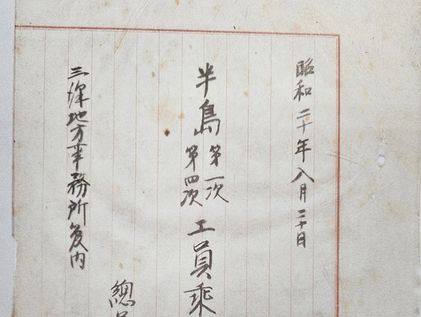 昭和二十年八月二十日
半島 第一次 第四次 工員乗
三澤地方事務所内
總